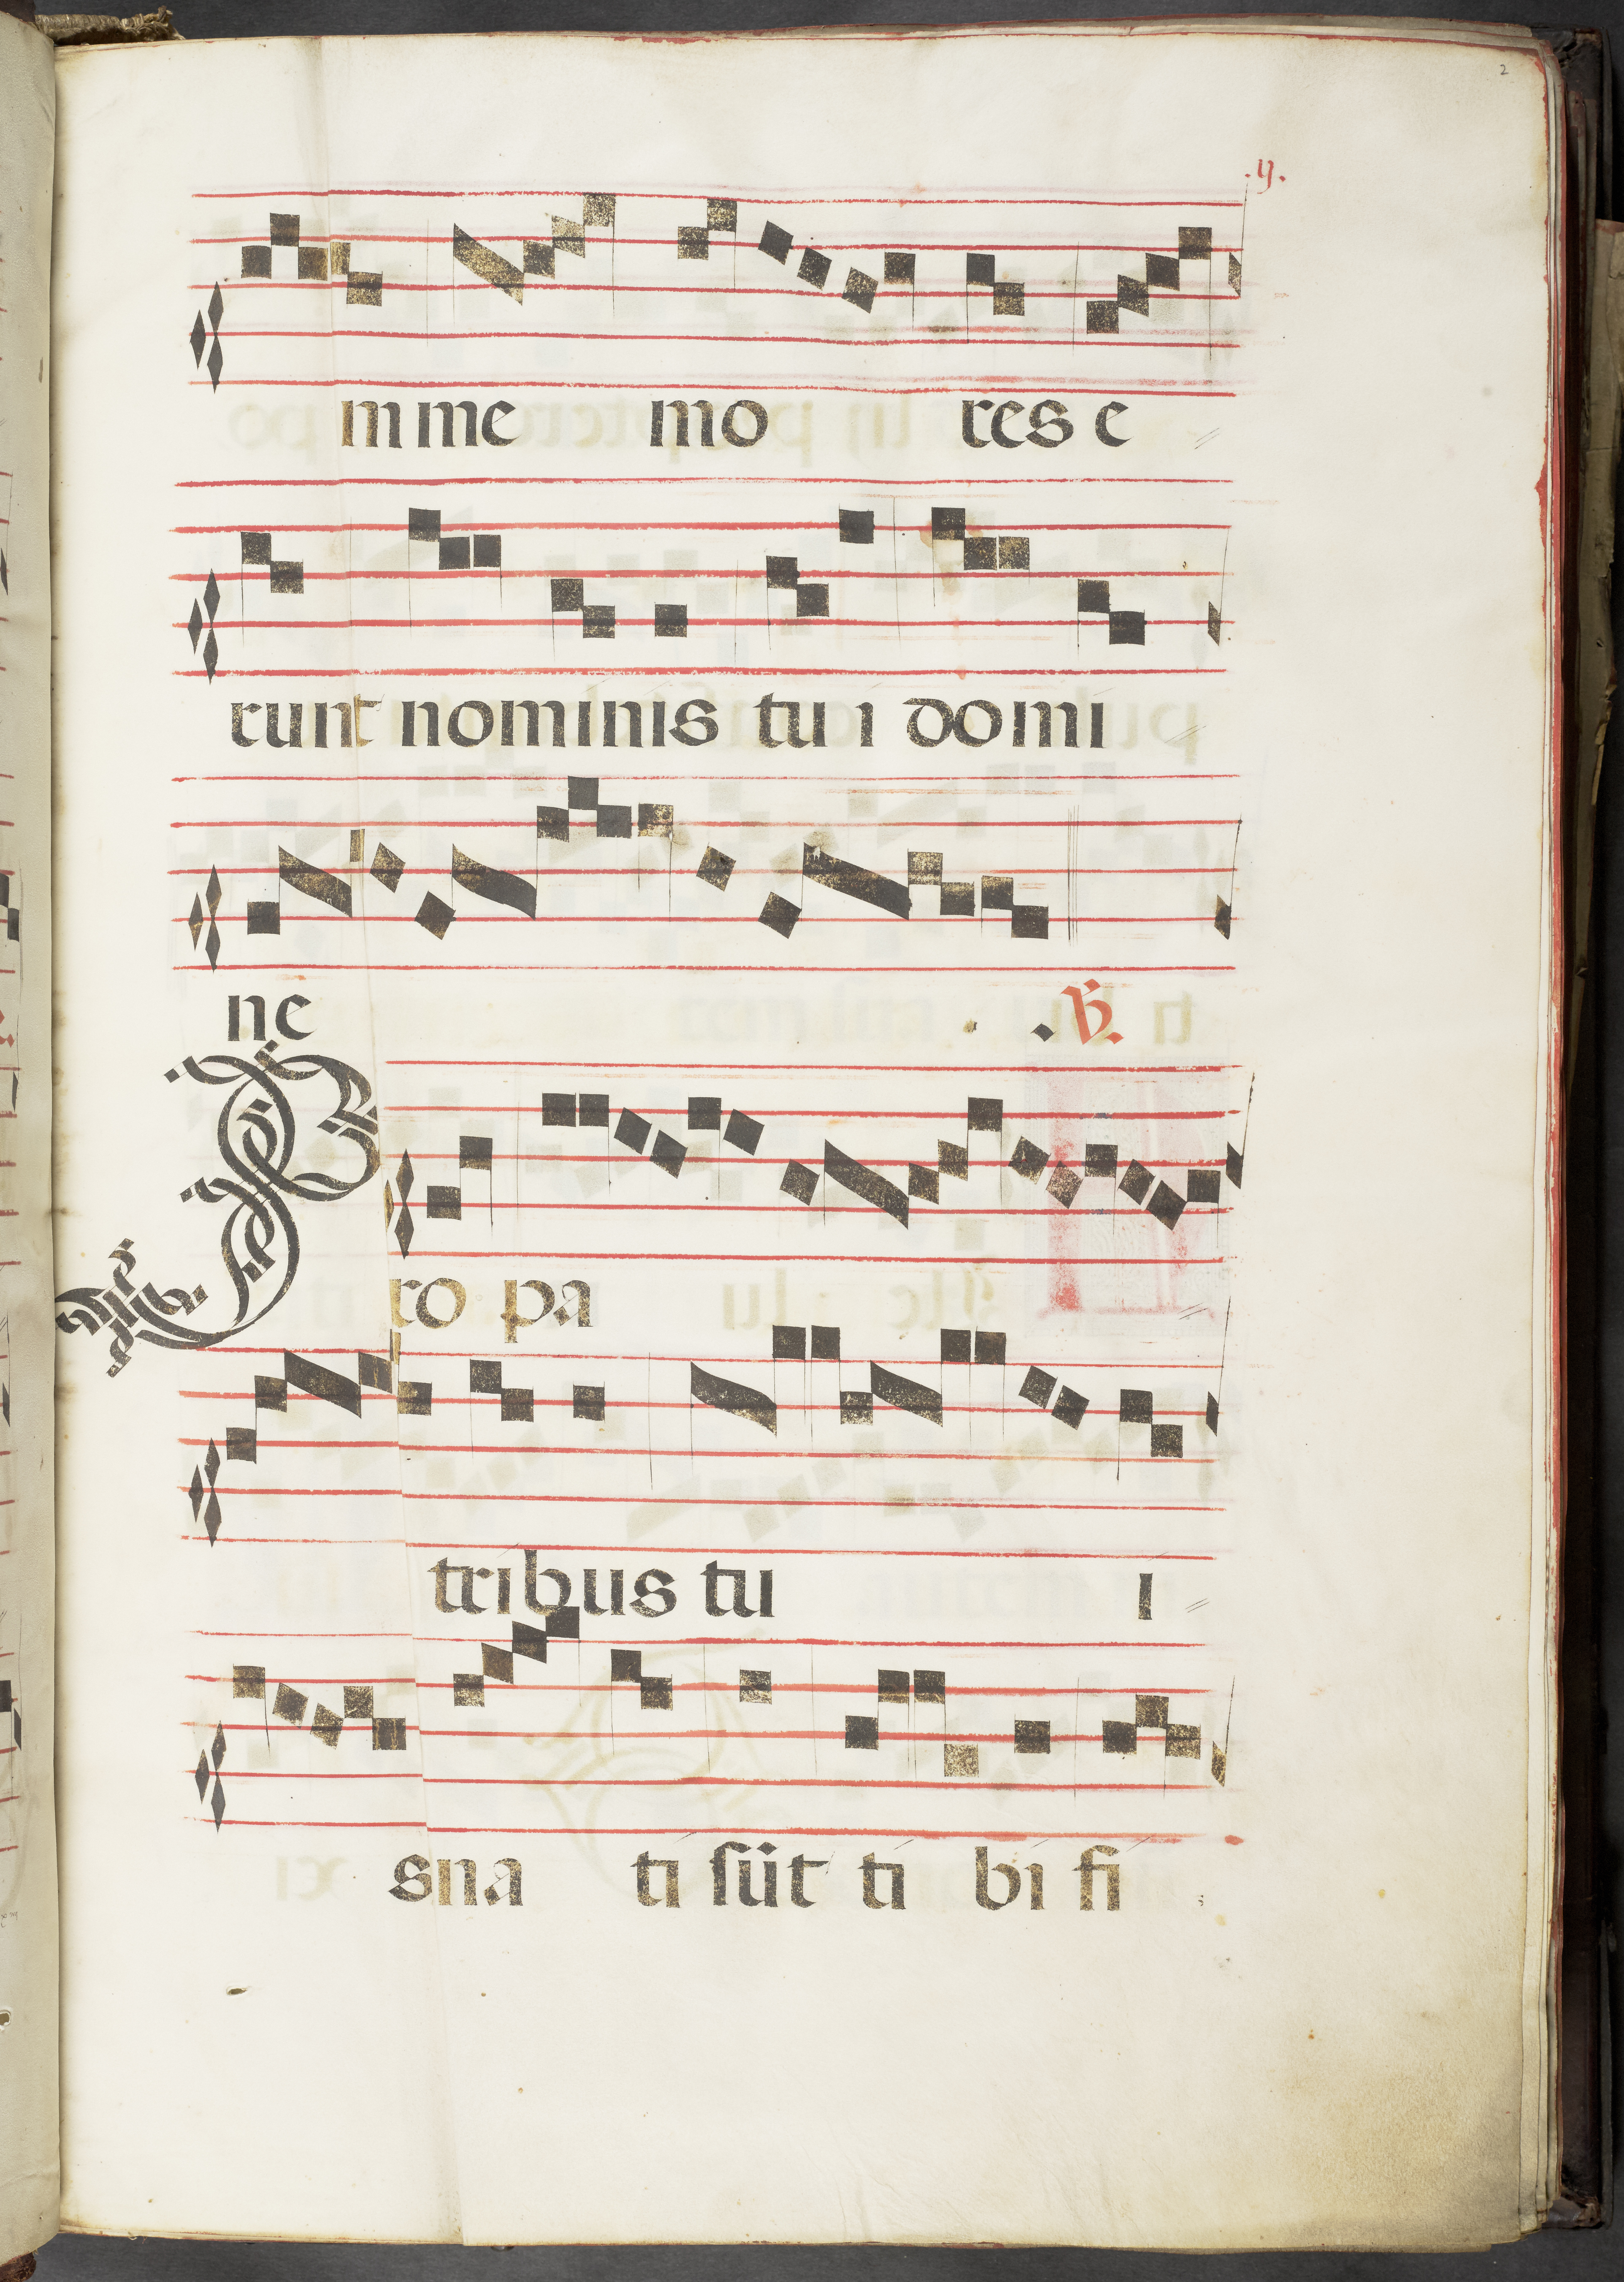 2
.ij.
mme mo res e
runt nominis tu i domi
ne .℣.
Pro pa
tribus tu i
s na ti sūt ti bi fi